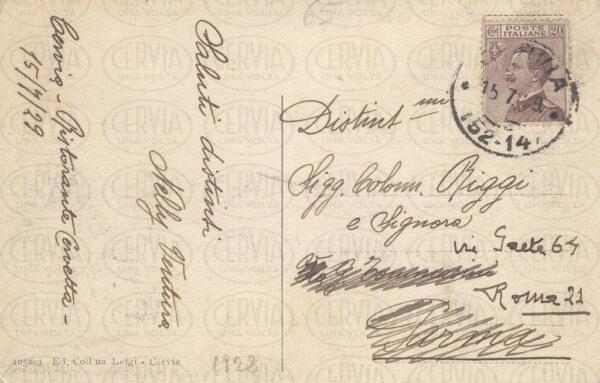 65
Cervia - Ristorante Cervetta -
15/7/29
Saluti distinti
Nelly Ventura
103263 Ed. Collina Luigi - Cervia
1928
POSTE
ITALIANE
20
15.7.29
152-14
Distint mi
Sigg. Colonn. Riggi
e Signora
via Gaeta 64
Roma 21
Parma
CERVIA
UNA VOLTA